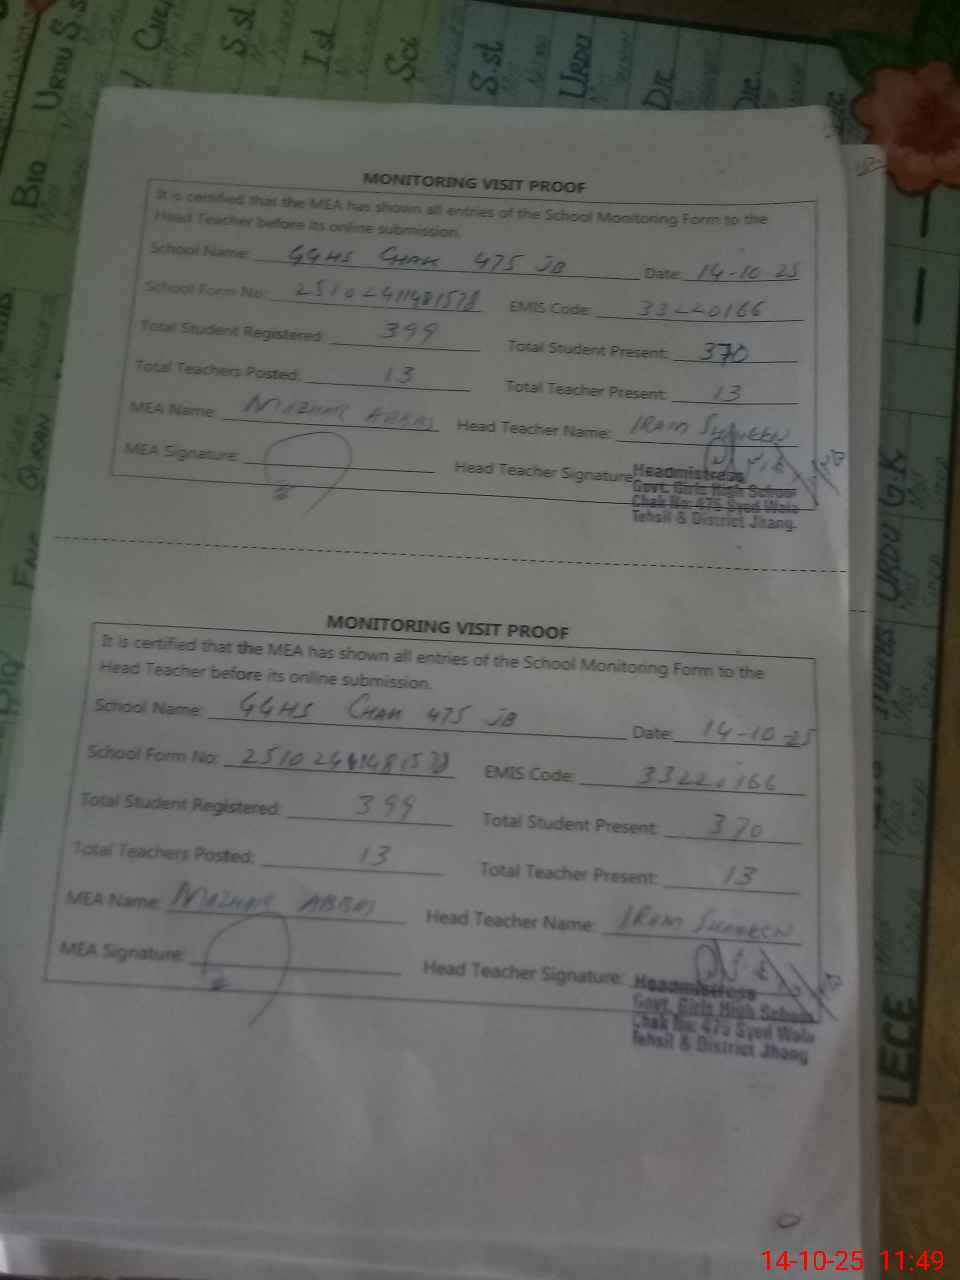 URDU
S.st
Ist
Sci
S.st
URDU
BIO
MONITORING VISIT PROOF
It is certified that the MEA has shown all entries of the School Monitoring Form to the
Head Teacher before its online submission.
School Name: GGHS CHAK 475 JB Date: 14-10-25
School Form No: EMIS Code: 33220166
Total Student Registered: 399 Total Student Present: 370
Total Teachers Posted: 13 Total Teacher Present: 13
MEA Name: MAZHAR ABBAS Head Teacher Name: IRAM SHAHEEN
MEA Signature: Head Teacher Signature:
Headmistress
Govt. Girls High School
Chak No: 475 Syed Wala
Tehsil & District Jhang.
QURAN
URDU
G.K
MONITORING VISIT PROOF
It is certified that the MEA has shown all entries of the School Monitoring Form to the
Head Teacher before its online submission.
School Name: GGHS CHAK 475 JB Date: 14-10-25
School Form No: EMIS Code: 33220166
Total Student Registered: 399 Total Student Present: 370
Total Teachers Posted: 13 Total Teacher Present: 13
MEA Name: MAZHAR ABBAS Head Teacher Name: IRAM SHAHEEN
MEA Signature: Head Teacher Signature:
Headmistress
Govt. Girls High School
Chak No: 475 Syed Wala
Tehsil & District Jhang
ECE
14-10-25 11:49